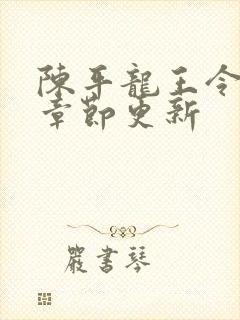 陳平龍王令
章節更新
嚴書琴